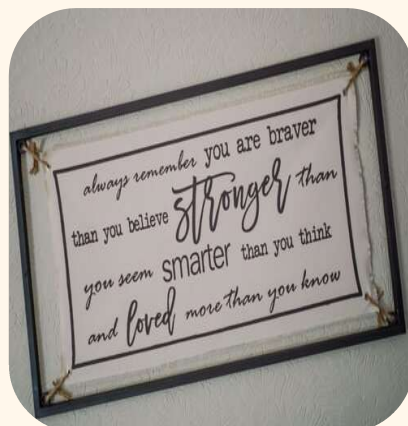 always remember you are braver
than you believe stronger than
you seem smarter than you think
and loved more than you know